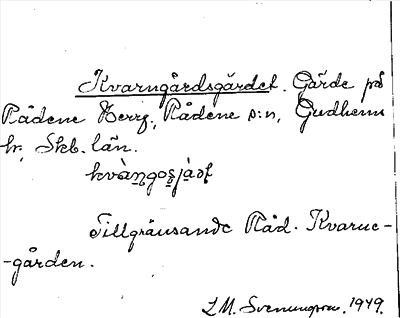 Kvarngårdsgärdet. Gärde på
Rådene Herrg., Rådene s:n, Gudhems
hr, Skb. län.
Tillgränsande Råd. Kvarne-
-gården.
L M. Svenungsson. 1949.